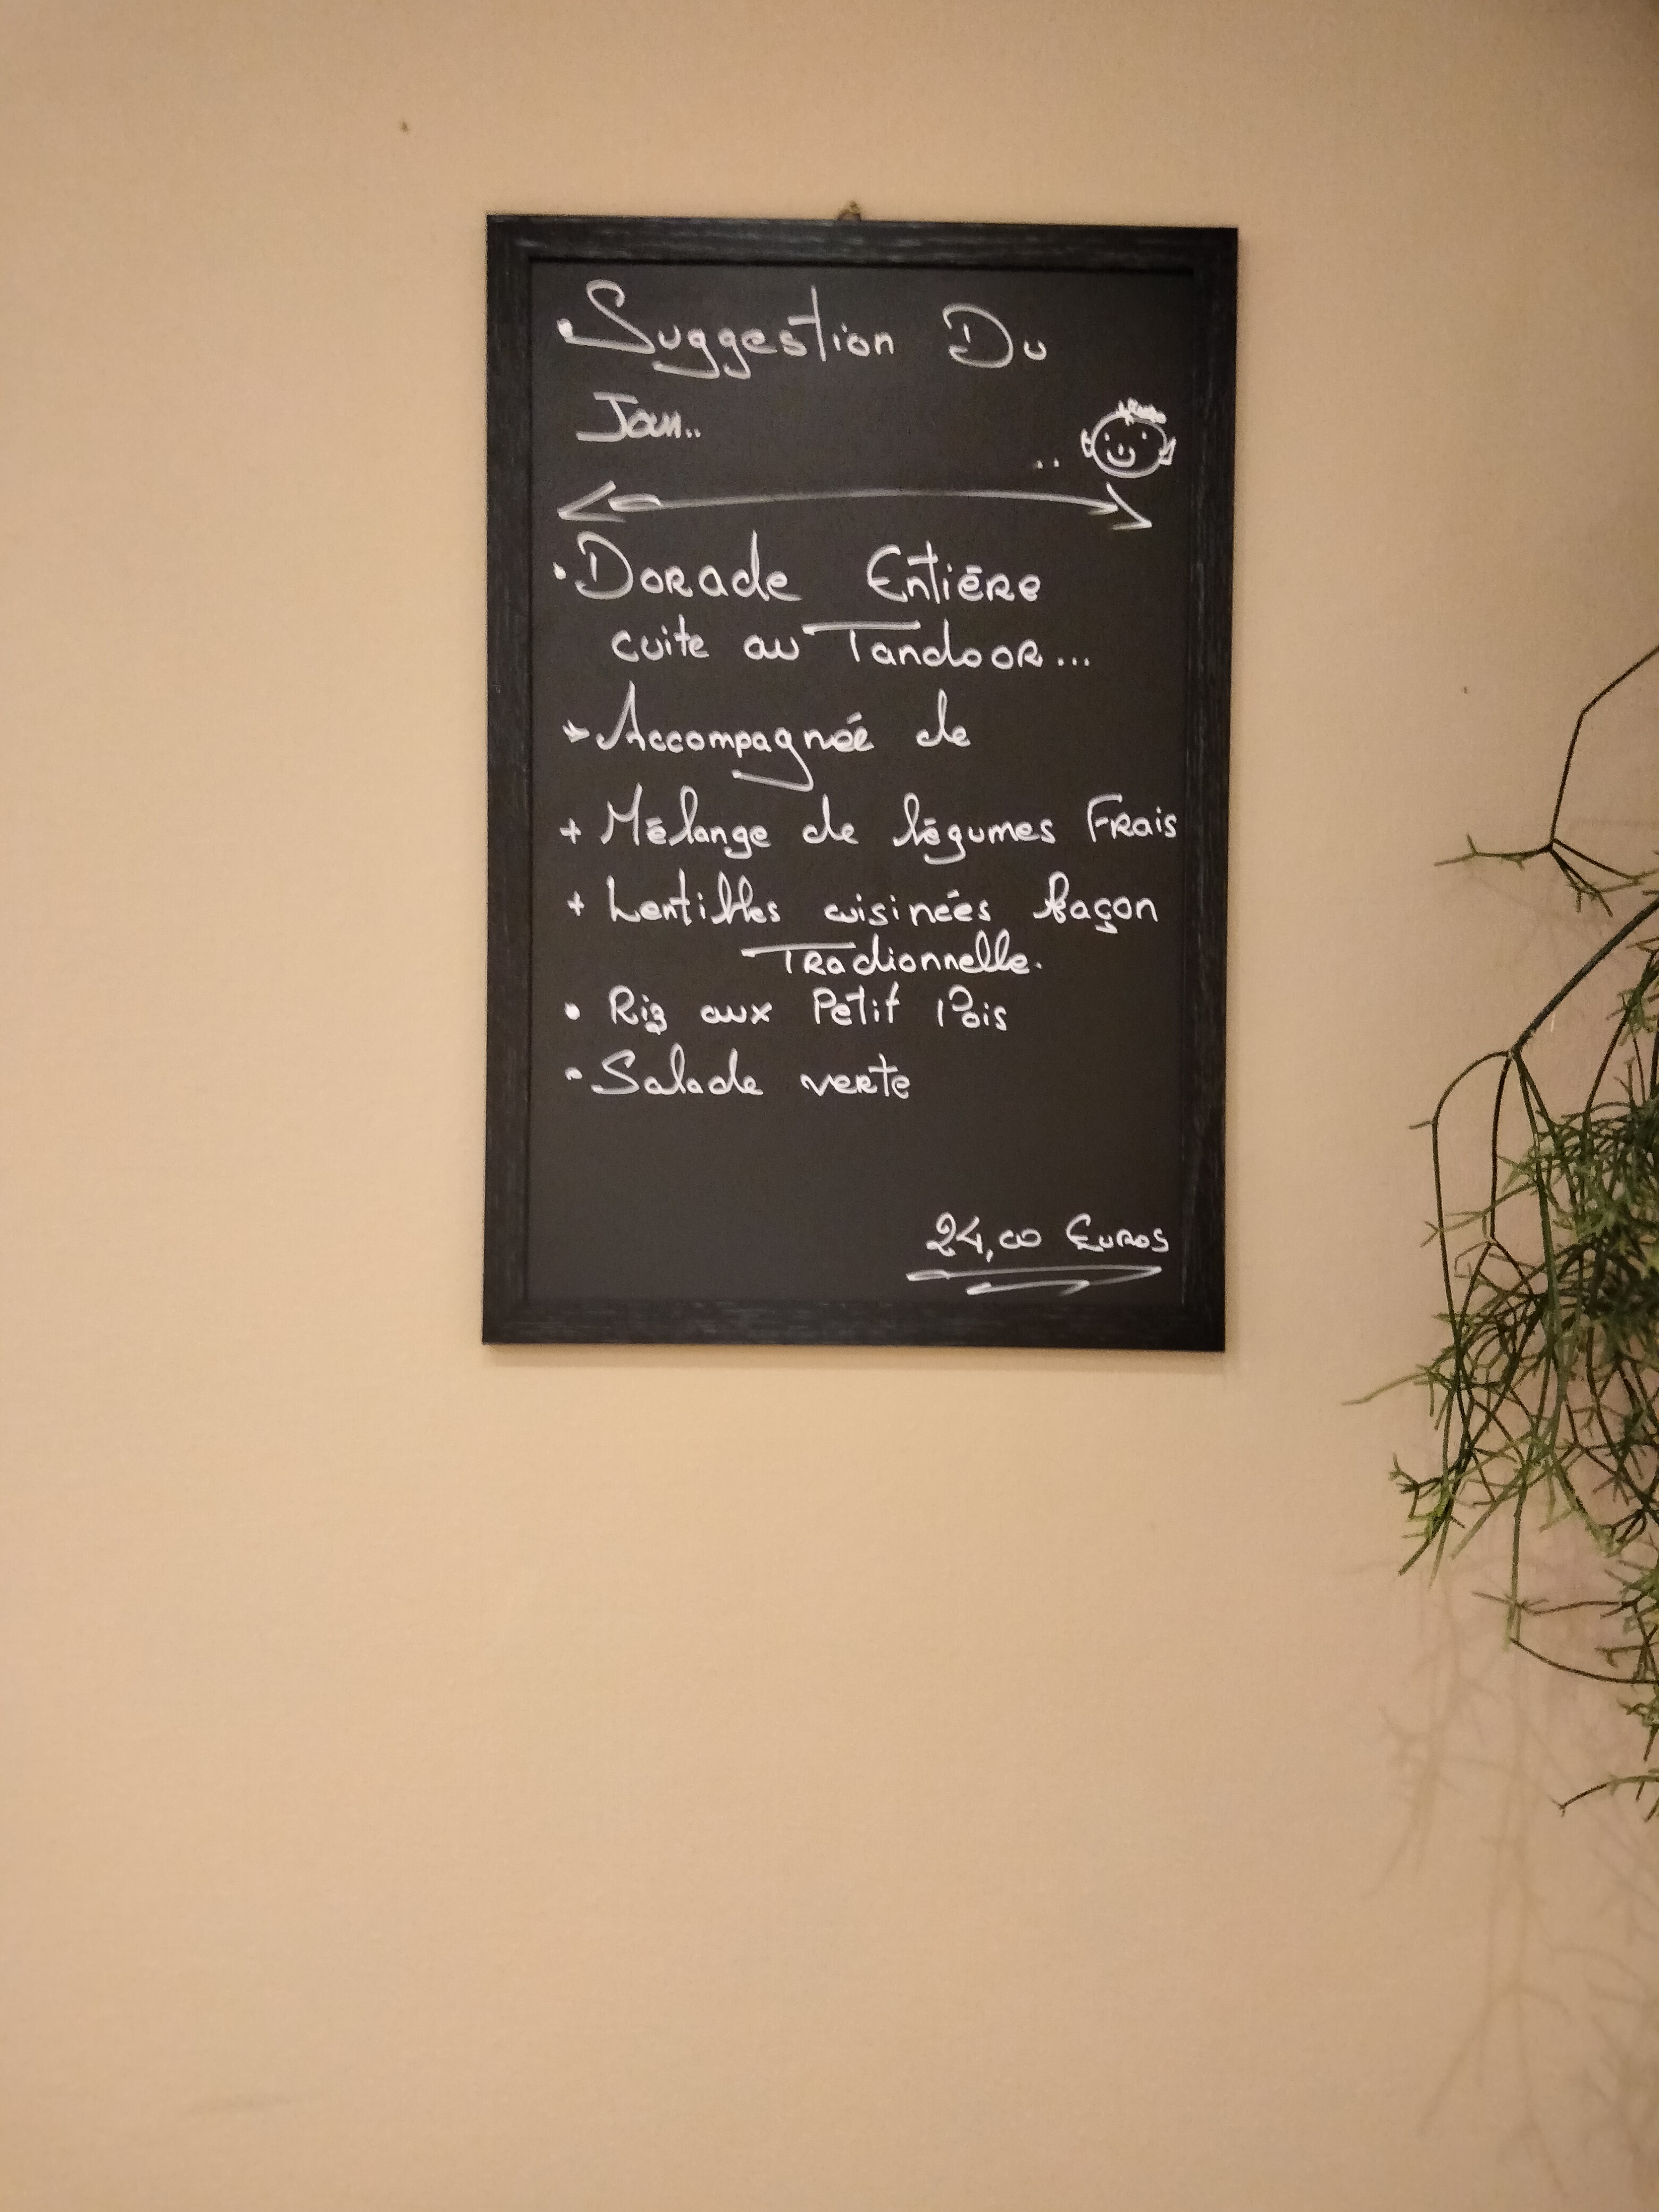 • Suggestion Du
Jour..
• Dorade Entière
cuite au Tandoor...
→ Accompagnée de
+ Mélange de légumes Frais
+ Lentilles cuisinées façon
Tradionnelle.
• Riz aux Petit Pois
• Salade verte
24,00 Euros